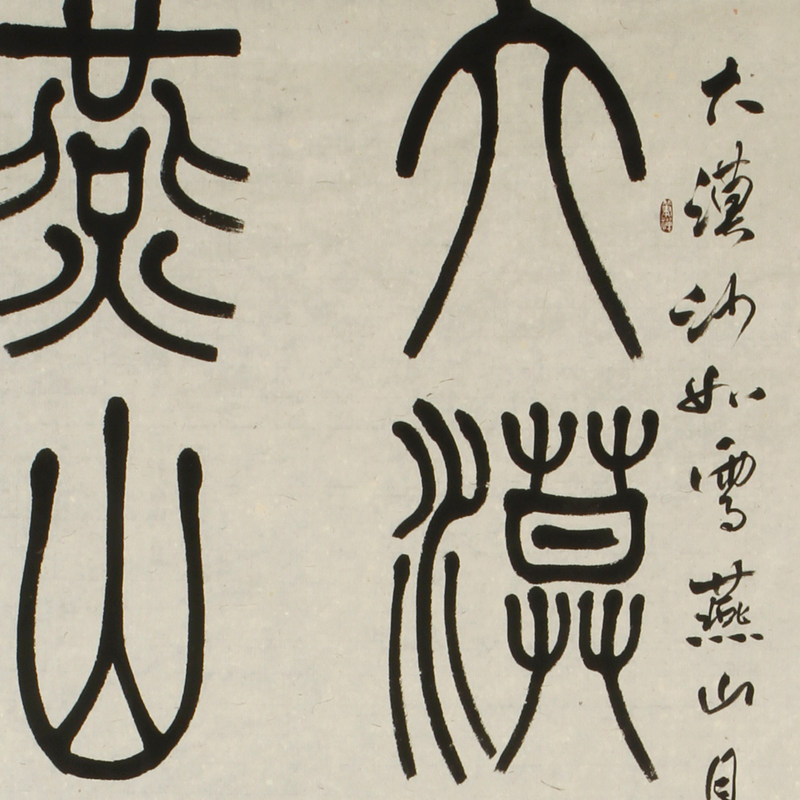 大漠沙如雪燕山月
大漠
燕山